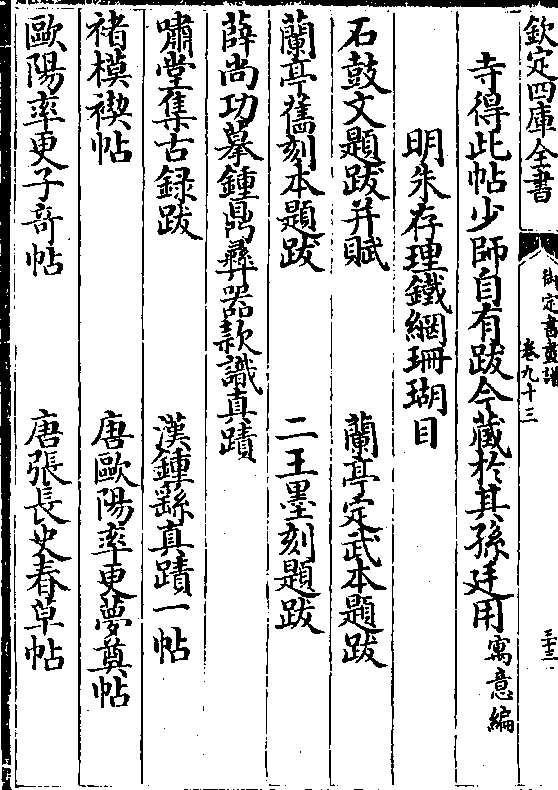 欽定四庫全書
御定書畫譜
卷九十三
三十三
寺得此帖少師自有跋今藏於其孫廷用寓意編
明朱存理鐵網珊瑚目
石鼓文題跋并賦 蘭亭定武本題跋
蘭亭舊刻本題跋 二王墨刻題跋
薛尚功摹鍾鼎彝器款識真蹟
嘯堂集古録跋 漢鍾繇真蹟一帖
褚模禊帖 唐歐陽率更夢奠帖
歐陽率更子奇帖 唐張長史春草帖